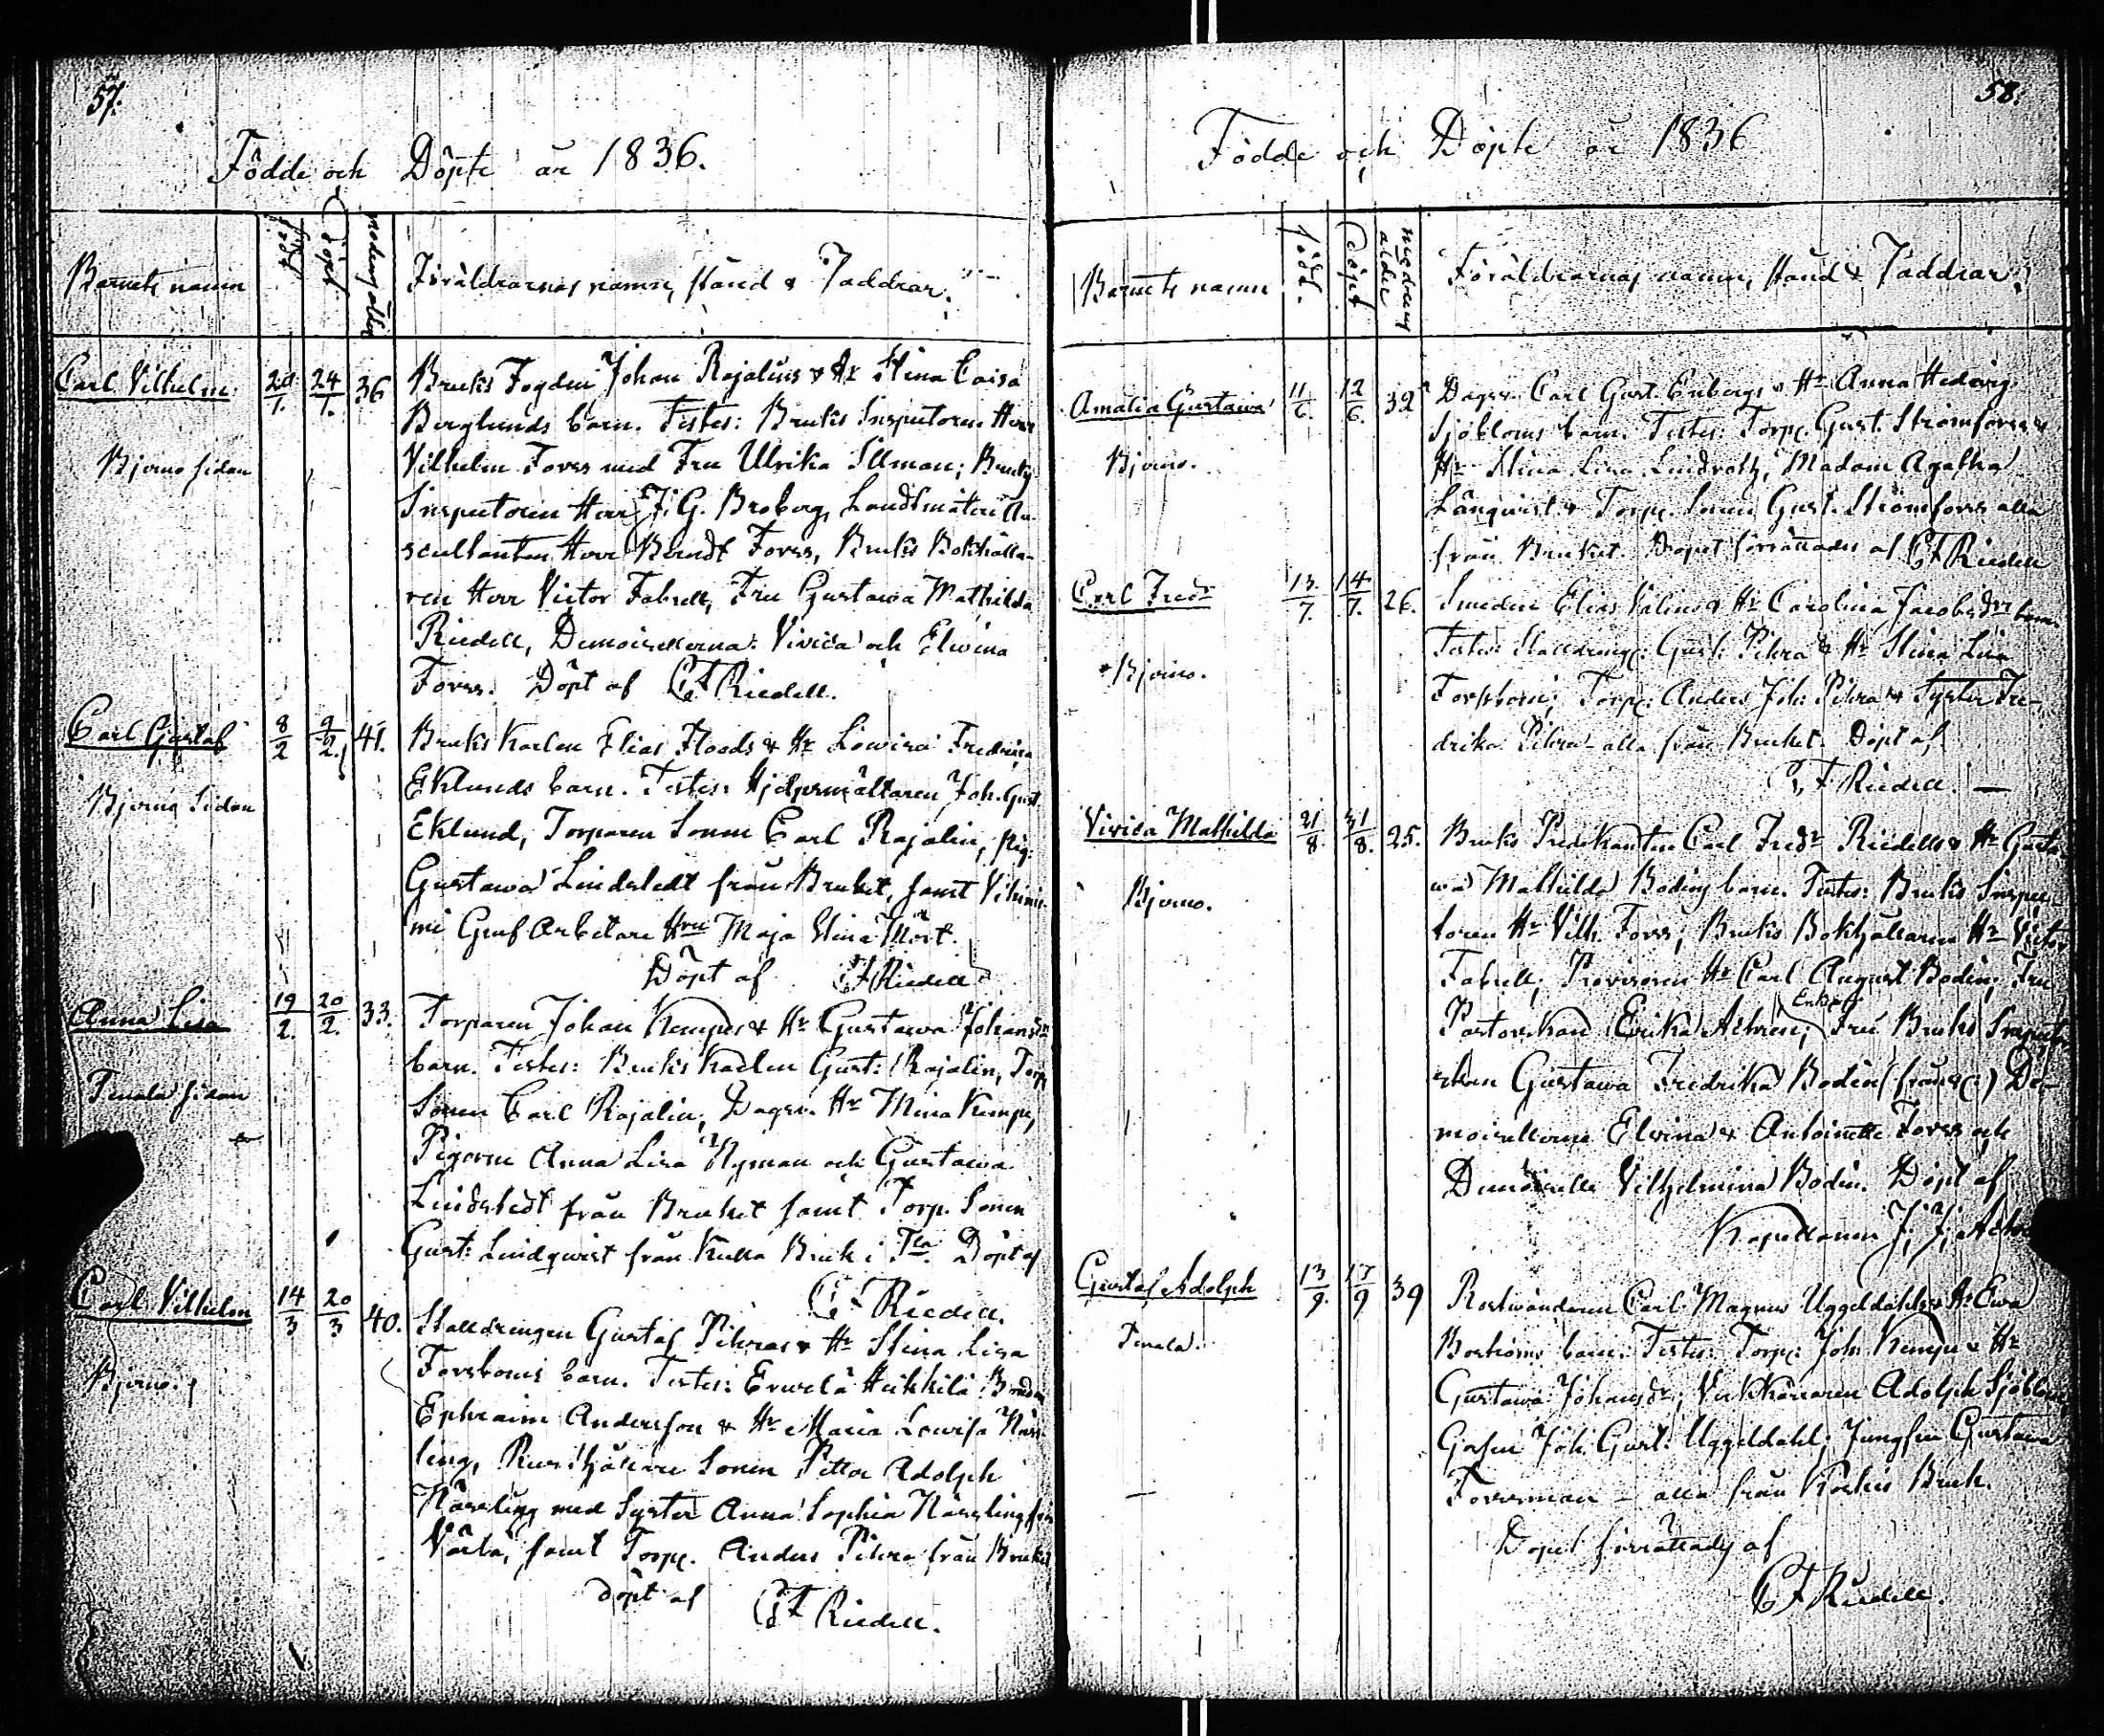 57.
Födde och Döpte år 1836.
Barnets namn
född
Döpt
modrens ålder
Föräldrarnas namn, stånd & Faddrar.
Carl Vilhelm
24/1.
36
Bruks Fogden Johan Rajalins & Hr Stina Caisa
Berglunds barn. Testes: Bruks Inspectoren Herr
Bjerno sidan
Vilhelm Forss med Fru Ulrika Illman; Bruks
Inspectoren Herr J. G. Broberg, Landtmäteri Au-
scultanten Herr Berndt Forss, Bruks Bokhålla-
ren Herr Victor Fabrell, Fru Gustawa Mathilda
Riedell, Demoisellerna: Vivica och Elwina
Forss. Döpt af CF Riedell.
Carl Gustaf
8/2
9/2.
41.
Bruks Karlen Elias Floods & Hr Lowisa Fredrica
Bjerno Sidan
Eklunds barn. Testes: Hjelpsmältaren Joh. Gust.
Eklund, Torparen Sonen Carl Rajalin, Pig:
Gustawa Lindstedt från Bruket, samt
Gruf Arbetare Hru Maja Stina Mört.
Döpt af CF Riedell
Anna Lisa
19/2.
20/2.
33.
Torparen Johan Kempes & Hr Gustawa Johansdr
barn. Testes: Bruks Karlen Gust: Rajalin, Torp.
Tenala sidan
Sonen Carl Rajalin, Dagsv. Hr Mina Kempe,
Pigorne Anna Lisa Nyman och Gustawa
Lindstedt från Bruket samt Torp. Sonen
Gust: Lindqwist från Kulla Bruk i Tla. Döpt af
CF Riedell.
Carl Vilhelm
14/3
20/3
40.
Stalldrengen Gustaf Pihras & Hr Stina Lisa
Bjerno.
Forsboms barn. Testes: Erwelä Heikkilä Bonden
Ephraim Andersson & Hr Maria Lowisa Näss-
ling, Rusthållare Sonen Petter Adolph
Nässling med Syster Anna Sophia Nässling från
samt Torp. Anders Pihra från Bruket
döpt af CF Riedell.
58.
Födde och Döpte år 1836
Barnets namn
född.
döpt
modrens ålder
Föräldrarnas namn, stånd & Faddrar.
Amalia Gustawa
11/6.
12/6.
32
Dagsv. Carl Gust. Enbergs & Hr Anna Hedvig
Sjöbloms barn. Testes: Torp. Gust. Strömforss &
Bjerno.
Hr Stina Lisa Lindroth, Madam Agatha
Långwist & Torp. Sonen Gust. Strömforss alla
från Bruket. Dopet förrättades af CF Riedell
Carl Fredr
13/7.
14/7.
26.
Smeden Elias Valins & Hr Carolina Jacobsdrs barn
Testes: Stalldreng: Gust: Pihra & Hr Stina Lisa
Bjerno.
Forsbom; Torp: Anders Joh: Pihra & Syster Fre-
drika Pihra alla från Bruket. Döpt af
CF Riedell. —
Vivica Mathilda
21/8.
31/8.
25.
Bruks Predikanten Carl Fredr Riedells & Hr Gusta-
wa Mathilda Bodins barn. Testes: Bruks Inspec-
Bjerno.
toren Hr Vilh. Forss, Bruks Bokhållaren Hr Victor
Fabrell, Provisoren Hr Carl August Bodin; Fru
Pastorskan Erika Achrén; Enkefr Fru Bruks Inspecto-
rskan Gustawa Fredrika Bodin De-
moisellerna Elvina & Antoinette Forss och
Demoiselle Vilhelmina Bodin. Döpt af
Kapellanen J. J.
Gustaf Adolph
13/9.
39
Rostwändaren Carl Magnus Uggeldahls & Hr Ewa
Tenala.
Boströms barn. Testes: Torp: Joh. Kempe & Hr
Gustawa Johansdr; Adolph Sjöblom
Gossen Joh. Gust: Uggeldahl; Jungfru Gustawa
Forssman — alla från Koskis Bruk.
Dopet förrättades af
CF Riedell.